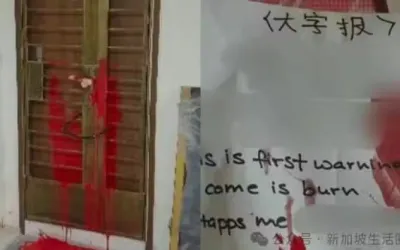 〈大字报〉
is is first warning
come is burn
tapps me
公众号·新加坡生活圈